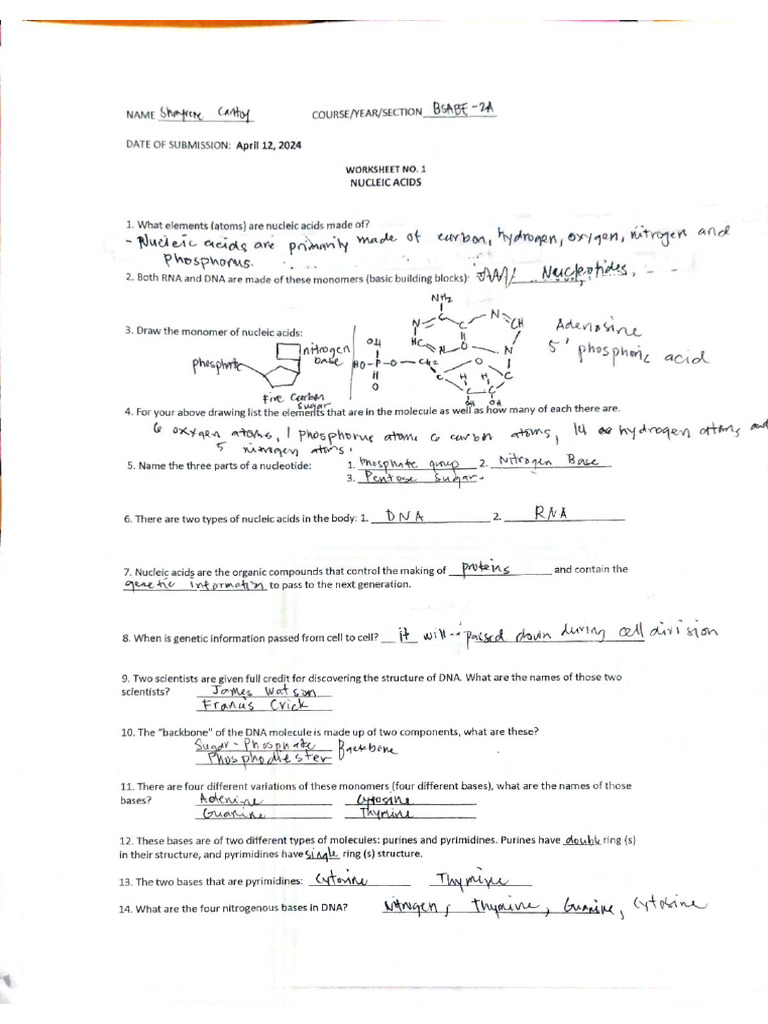 NAME Cantoy COURSE/YEAR/SECTION BSABE-2A
DATE OF SUBMISSION: April 12, 2024
WORKSHEET NO. 1
NUCLEIC ACIDS
1. What elements (atoms) are nucleic acids made of?
- Nucleic acids are primarily made of carbon, hydrogen, oxygen, nitrogen and
phosphorus.
2. Both RNA and DNA are made of these monomers (basic building blocks): Nucleotides,
3. Draw the monomer of nucleic acids:
phosphate
nitrogen
base
Five carbon
sugar
OH
HO-P-O-CH2
O
NH2
N C C N CH
HC N O N
C O C
H H
C C
OH OH
Adenosine
5' phosphoric acid
4. For your above drawing list the elements that are in the molecule as well as how many of each there are.
6 oxygen atoms, 1 phosphorus atom 6 carbon atoms, 14 hydrogen atoms and
5 nitrogen atoms.
5. Name the three parts of a nucleotide: 1. Phosphate group 2. Nitrogen Base
3. Pentose Sugar.
6. There are two types of nucleic acids in the body: 1. DNA 2. RNA
7. Nucleic acids are the organic compounds that control the making of proteins and contain the
genetic information to pass to the next generation.
8. When is genetic information passed from cell to cell? it will passed down during cell division
9. Two scientists are given full credit for discovering the structure of DNA. What are the names of those two
scientists? James Watson
Francis Crick
10. The "backbone" of the DNA molecule is made up of two components, what are these?
Sugar - Phosphate Backbone
Phosphodiester
11. There are four different variations of these monomers (four different bases), what are the names of those
bases? Adenine Cytosine
Guanine Thymine
12. These bases are of two different types of molecules: purines and pyrimidines. Purines have double ring (s)
in their structure, and pyrimidines have single ring (s) structure.
13. The two bases that are pyrimidines: Cytosine Thymine
14. What are the four nitrogenous bases in DNA? Nitrogen, Thymine, Guanine, Cytosine